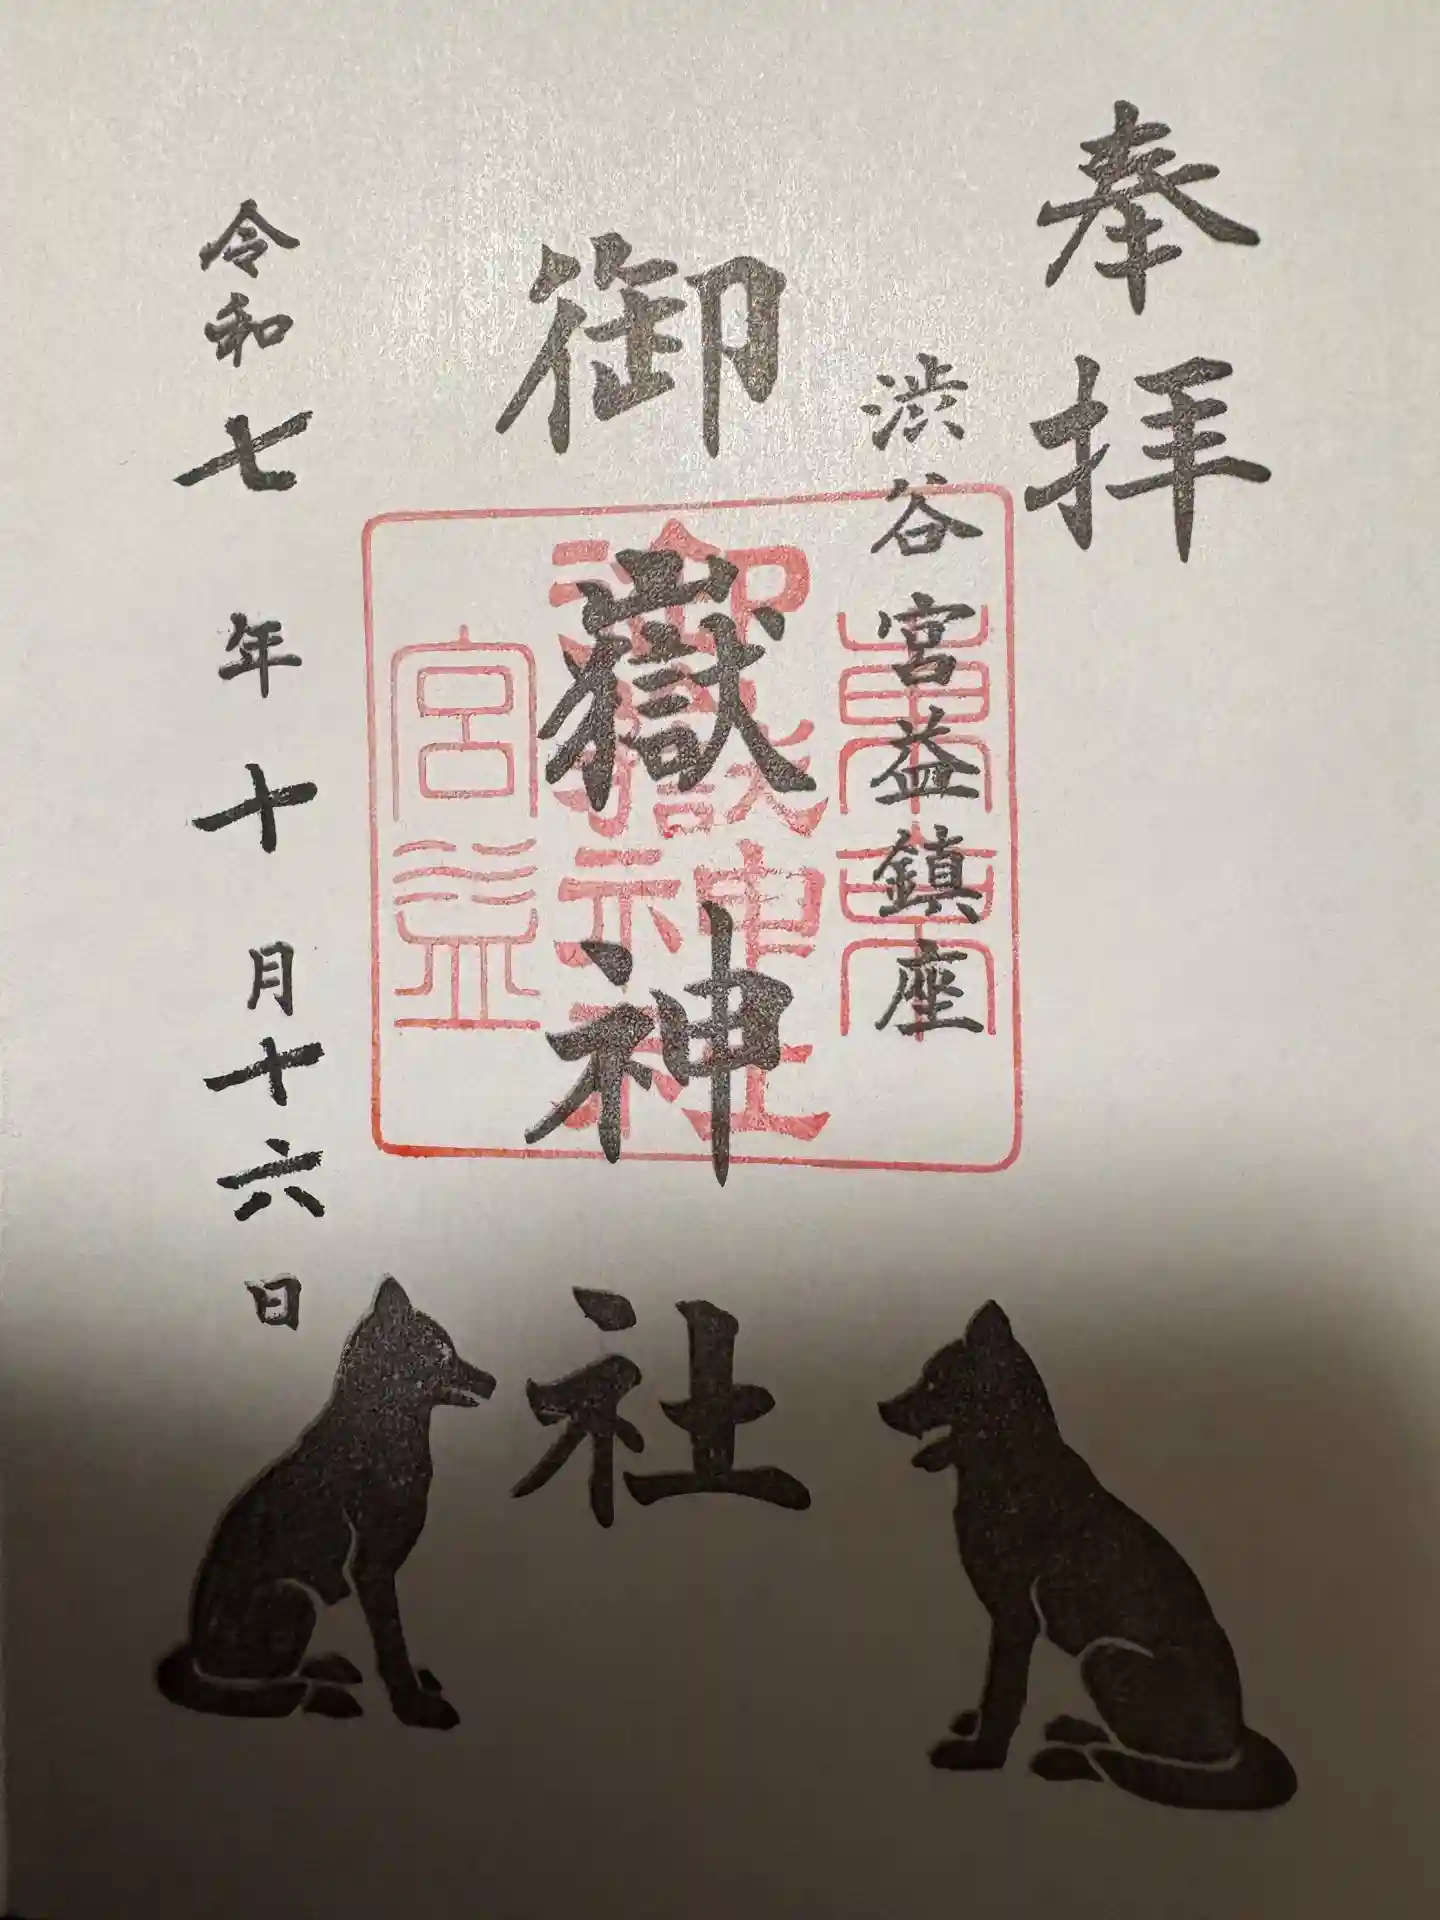 奉拝
渋谷宮益鎮座
御嶽神社
令和七年十月十六日
東京
御嶽神社
宮益